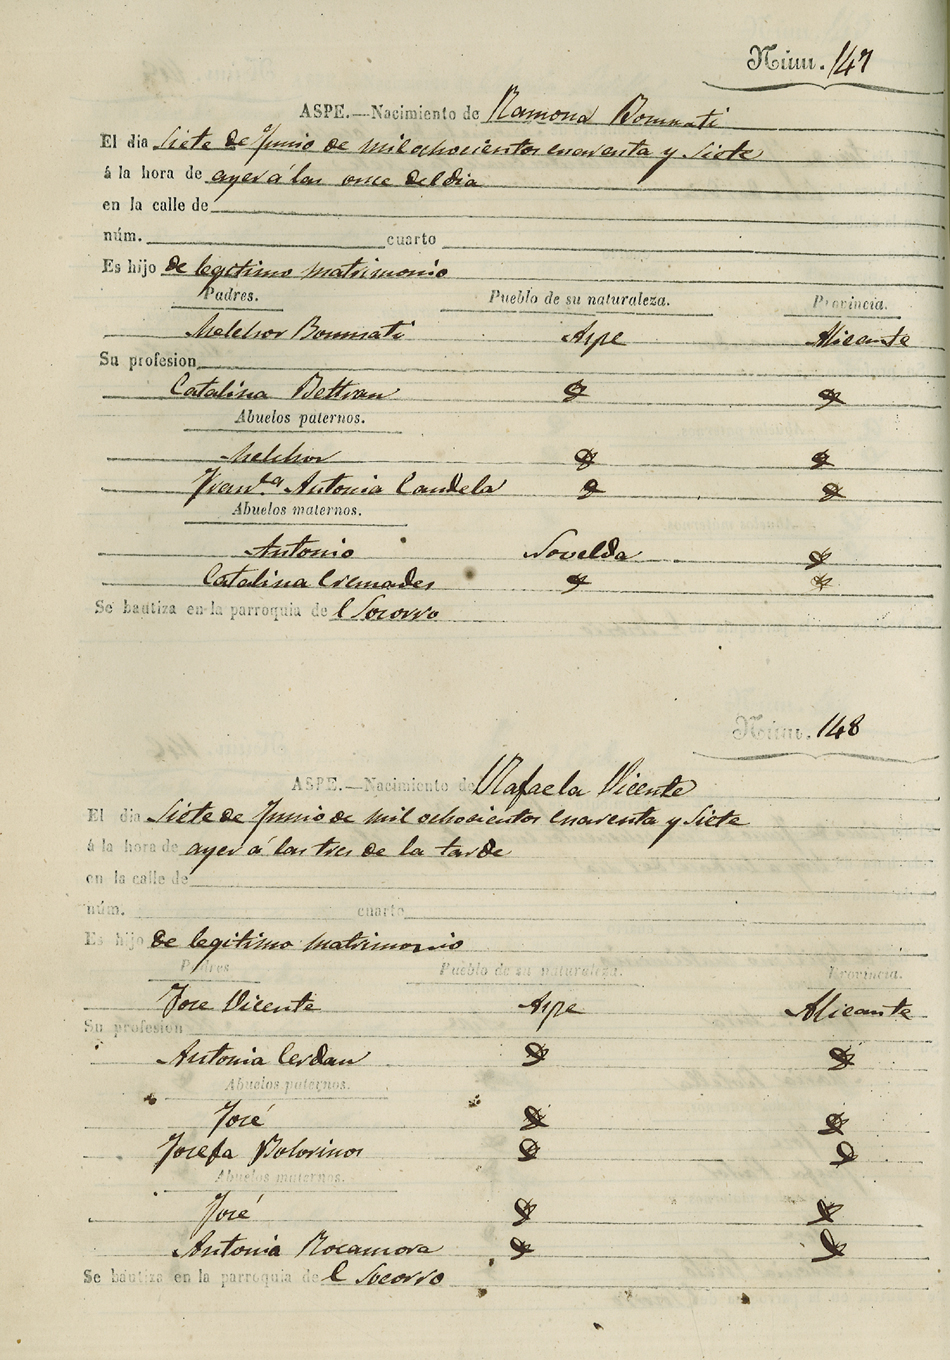 Núm. 147
ASPE.—Nacimiento de Ramona Bonmati
El dia siete de Junio de mil ochocientos cuarenta y siete
á la hora de ayer á las once del dia
en la calle de
núm. cuarto
Es hijo de legitimo matrimonio
Padres. Pueblo de su naturaleza. Provincia.
Melchor Bonmati Aspe Alicante
Su profesion
Catalina Beltran
Abuelos paternos.
Melchor
Franca Antonia Candela
Abuelos maternos.
Antonio Novelda
Catalina Cremades
Se bautiza en la parroquia de l Socorro
Núm. 148
ASPE.—Nacimiento de Rafaela Vicente
El dia siete de Junio de mil ochocientos cuarenta y siete
á la hora de ayer á las tres de la tarde
en la calle de
núm. cuarto
Es hijo de legitimo matrimonio
Padres Pueblo de su naturaleza. Provincia.
Jose Vicente Aspe Alicante
Su profesion
Antonia Cerdan
Abuelos paternos.
José
Josefa Bolorinos
Abuelos maternos.
José
Antonia Rocamora
Se bautiza en la parroquia de l Socorro